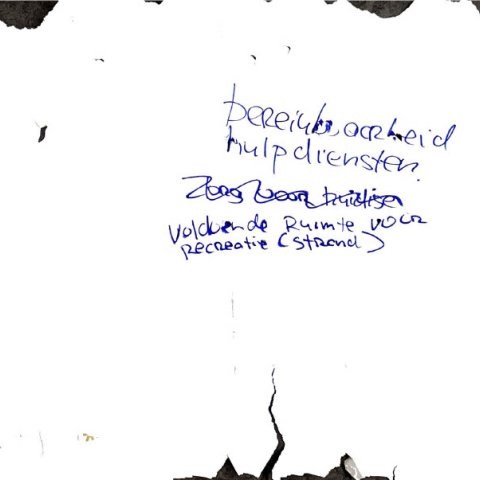 bereikbaarheid
hulpdiensten.
Zorg voor
voldoende Ruimte voor
recreatie (strand)